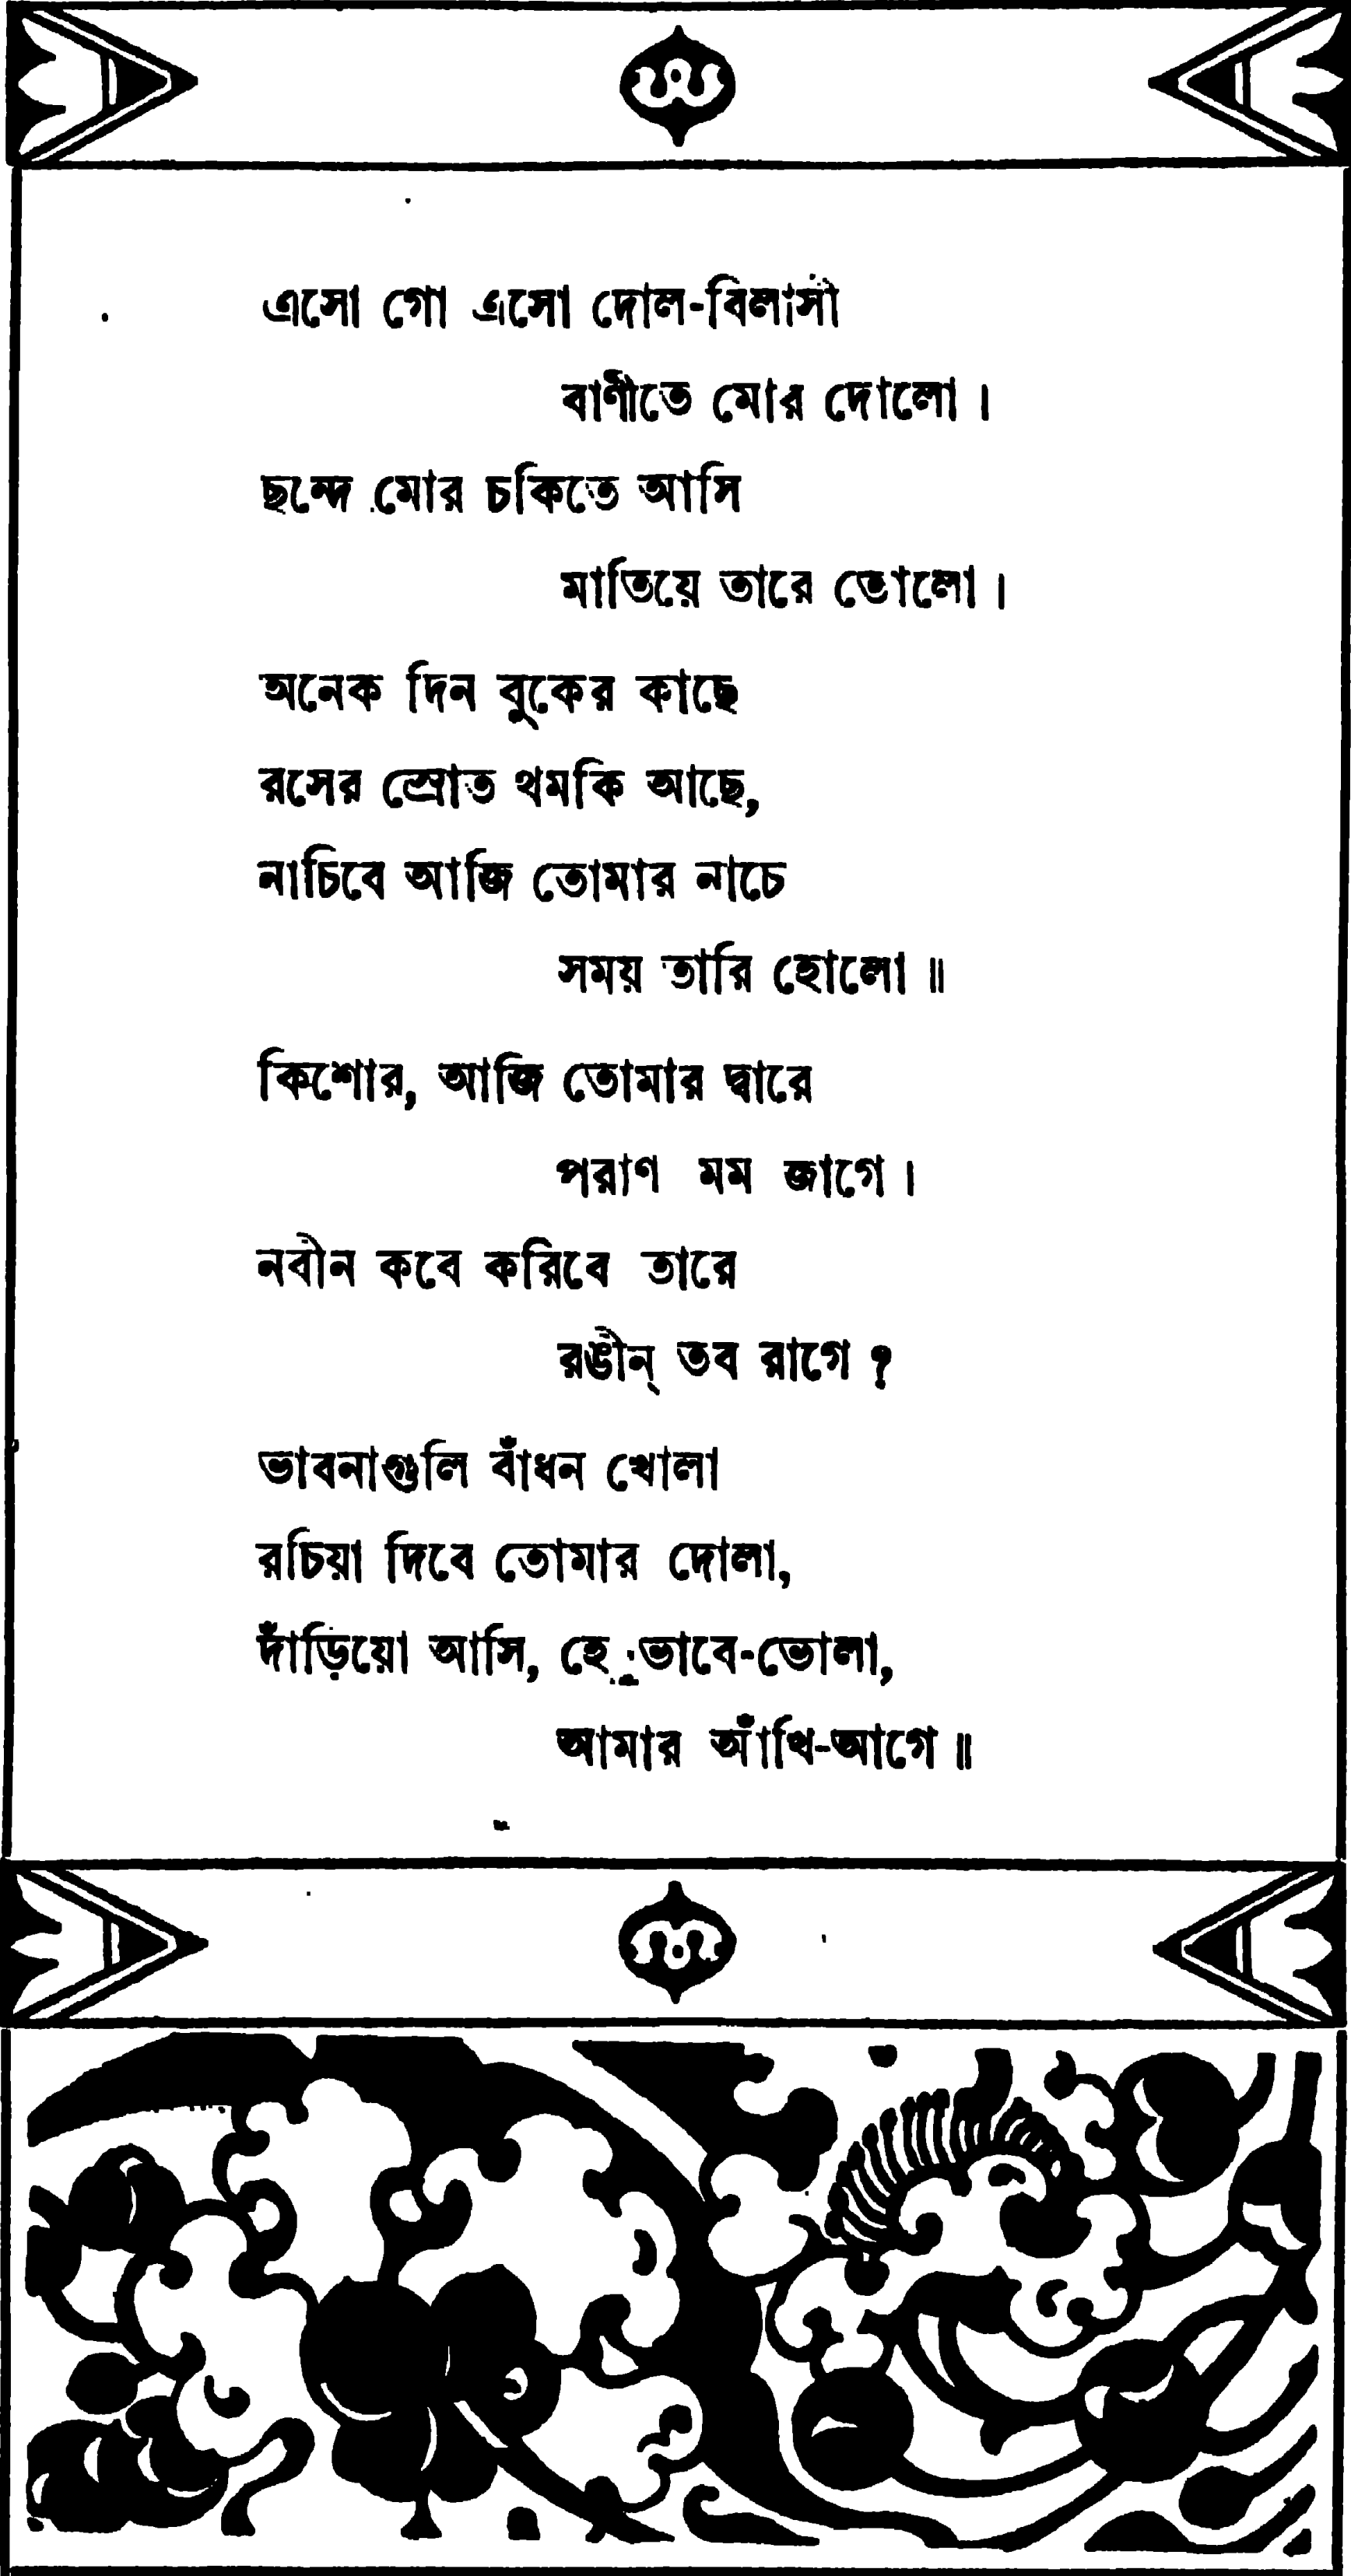 এসো গো এসো দোল-বিলাসী
বাণীতে মোর দোলো।
ছন্দে মোর চকিতে আসি
মাতিয়ে তারে তোলো।
অনেক দিন বুকের কাছে
রসের স্রোত থমকি আছে,
নাচিবে আজি তোমার নাচে
সময় তারি হোলো॥
কিশোর, আজি তোমার দ্বারে
পরাণ মম জাগে।
নবীন কবে করিবে তারে
রঙীন্ তব রাগে?
ভাবনাগুলি বাঁধন খোলা
রচিয়া দিবে তোমার দোলা,
দাঁড়িয়ো আসি, হে ভাবে-ভোলা,
আমার আঁখি-আগে॥